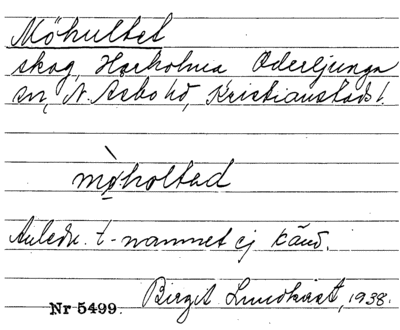 Möhultet
skog, Harholma, Oderljunga
sn, N. Åsbo hd, Kristianstads l.
mòholtad
Anledn. t. namnet ej känd.
Birgit Lundkvist, 1938.
Nr 5499.